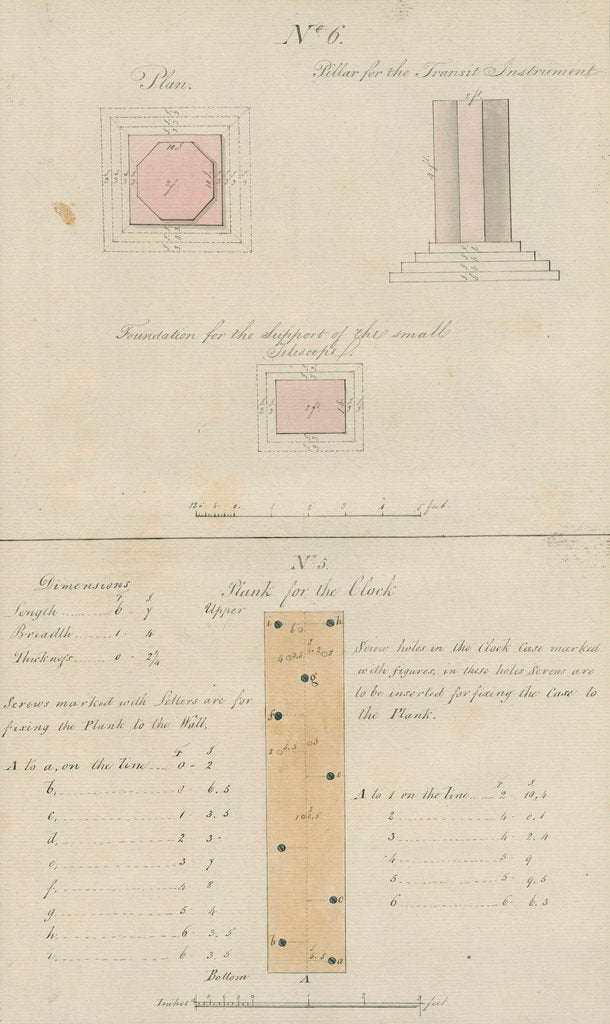 No 6.
Plan.
Pillar for the Transit Instrument.
2 ft.
4 ft.
10 I.
2 f.
Foundation for the Support of the small
Telescope.
2 ft
12 6 0 1 2 3 4 5 feet.
No 5.
Plank for the Clock
Dimensions
F I
Length 6 - 7
Breadth 1 - 4
Thickness 0 - 2 1/4
Upper
i h
g
f
e
c
b
a
Bottom A
Screws marked with Letters are for
fixing the Plank to the Wall.
F I
A to a, on the line 0 - 2
b, 0 - 6.5
c, 1 - 3.5
d, 2 3
e, 3 7
f, 4 8
g, 5 4
h, 6 3.5
i, 6 3.5
Screw holes in the Clock Case marked
with figures, in these holes Screws are
to be inserted for fixing the Case to
the Plank.
F I
A to 1 on the line 2 10,4
2 4 0.1
3 4 2.4
4 5 9
5 5 9.5
6 6 6.3
Inches feet